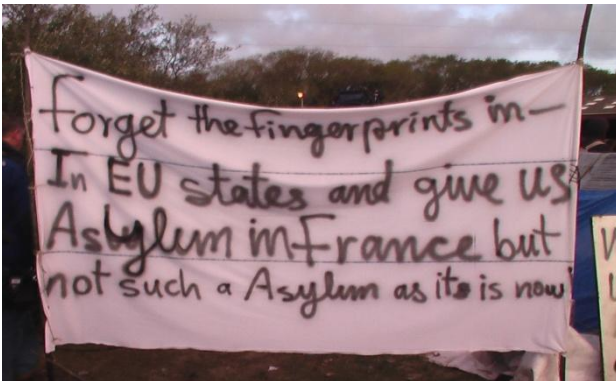 forget the fingerprints in-
In EU states and give us
Asylum in France but
not such a Asylum as its is now